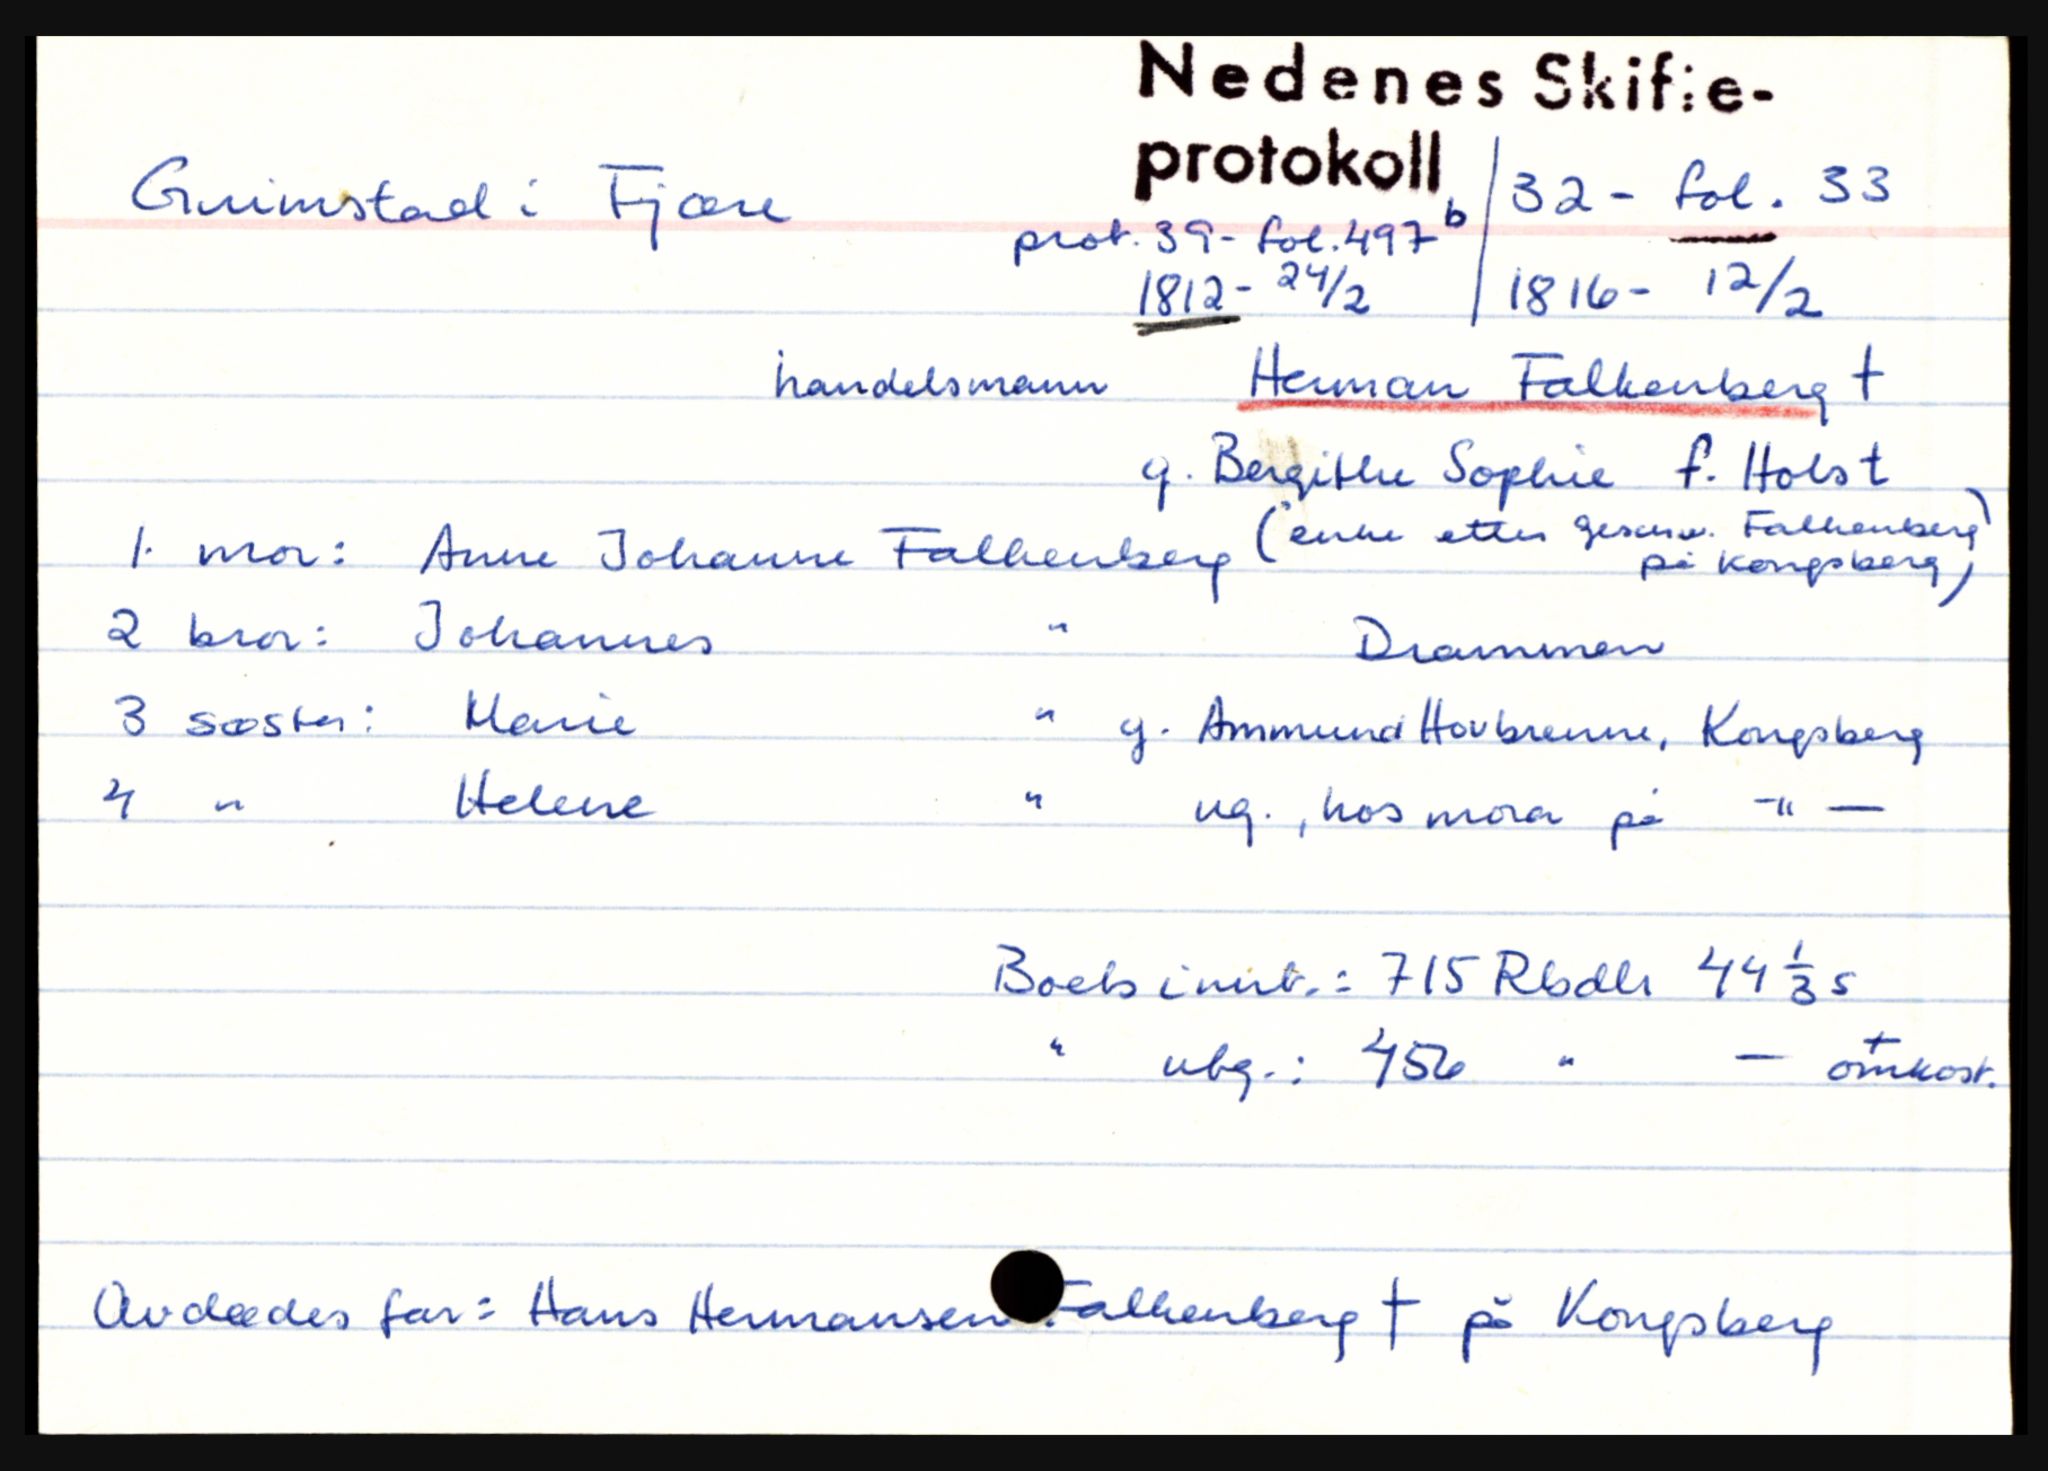 Nedenes Skifte-
protokoll
Grimstad i Fjære
32 - fol. 33
prot. 39 - fol. 497 b
1812 - 24/2
1816 - 12/2
handelsmann Herman Falkenberg †
g. Bergithe Sophie f. Holst
1. mor: Anne Johanne Falkenberg (enke etter Geschw. Falkenberg
på Kongsberg)
2 bror: Johannes " Drammen
3 søster: Marie " g. Ammund Hovbrenne, Kongsberg
4 " Helene " ug., hos mora på -"-
Boets innt.: 715 Rbdlr 44 1/3 s
" utg.: 456 " — + omkost.
Avdødes far: Hans Hermansen Falkenberg † på Kongsberg